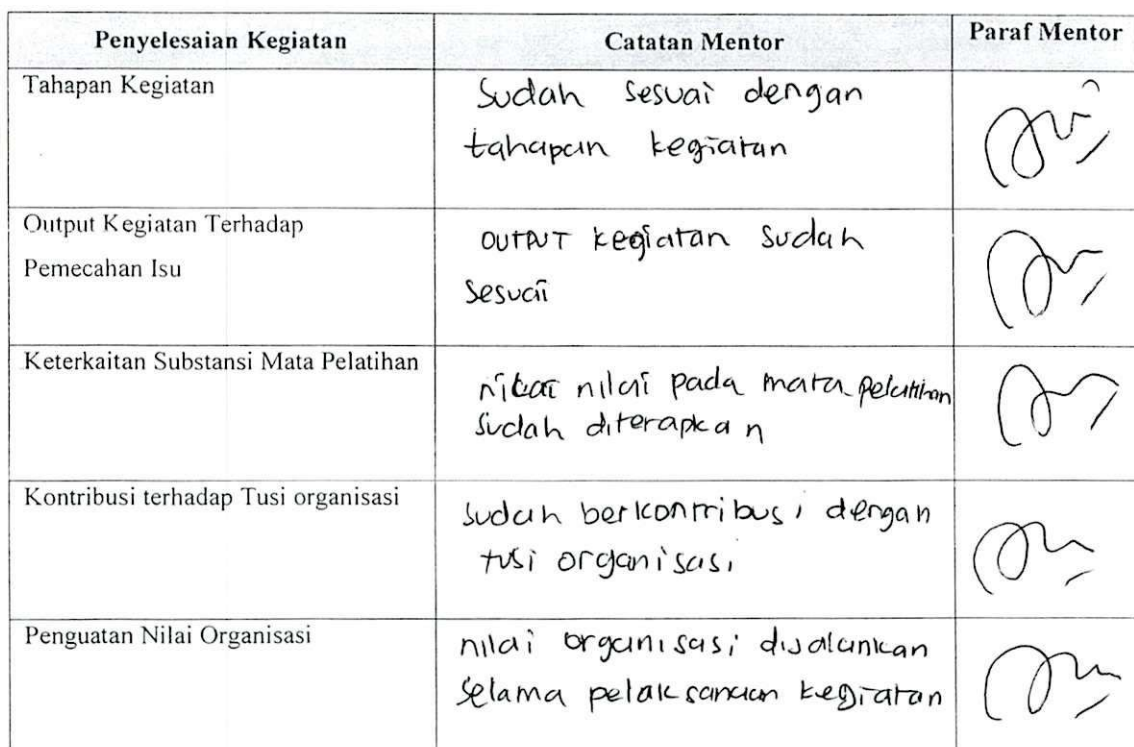 Penyelesaian Kegiatan Catatan Mentor Paraf Mentor
Tahapan Kegiatan
Sudah sesuai dengan
tahapan kegiatan
Output Kegiatan Terhadap
Pemecahan Isu
OUTPUT kegiatan sudah
sesuai
Keterkaitan Substansi Mata Pelatihan
nilai nilai pada mata pelatihan
sudah diterapkan
Kontribusi terhadap Tusi organisasi
sudah berkontribusi dengan
tusi organisasi
Penguatan Nilai Organisasi
nilai organisasi dijalankan
selama pelaksanaan kegiatan